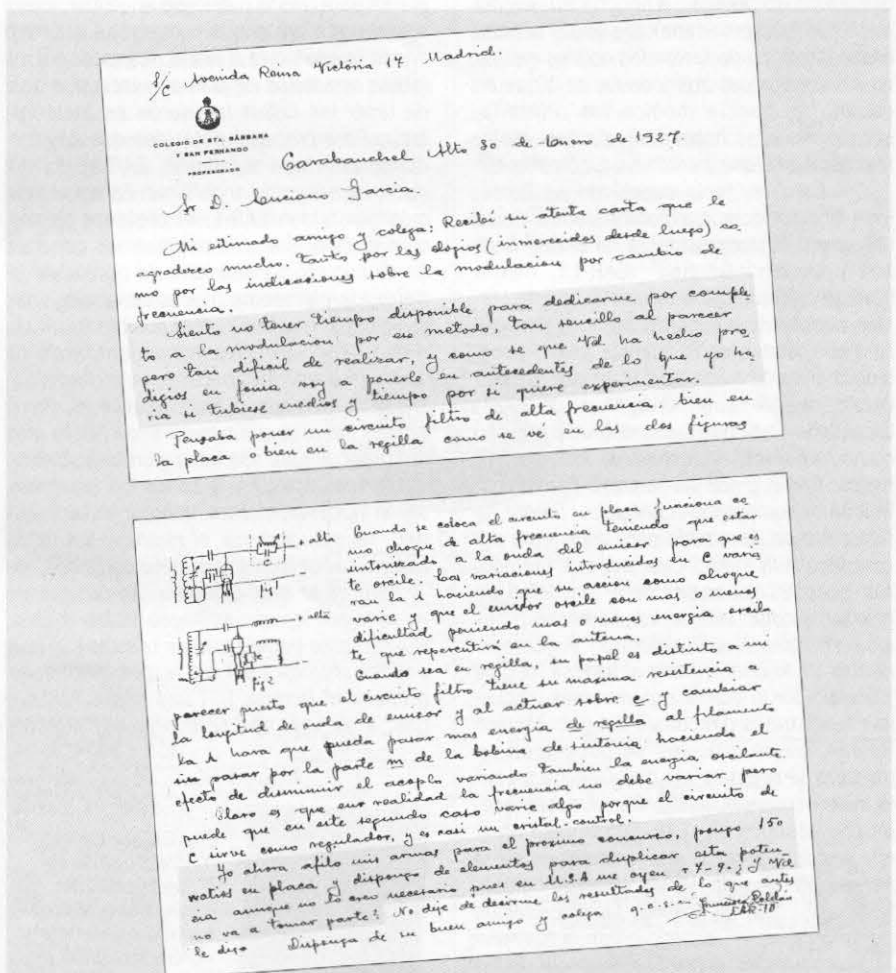 S/C Avenida Reina Victoria 17 Madrid.
COLEGIO DE STA. BÁRBARA
Y SAN FERNANDO
PROFESORADO
Carabanchel Alto 30 de Enero de 1927
Sr D. Luciano Garcia.
Mi estimado amigo y colega: Recibi su atenta nota que le
agradezco mucho, tanto por los elogios (inmerecidos desde luego) co
mo por las indicaciones sobre la modulacion por cambio de
frecuencia.
Siento no tener tiempo disponible para dedicarme por comple
to a la modulacion por su metodo, tan sencillo al parecer
pero tan dificil de realizar, y como se que Vd. ha hecho pro
digios en fonia voy a ponerle en antecedentes de lo que yo ha
ria si tubiese medios y tiempo por si quiere experimentar.
Pensaba poner un circuito filtro de alta frecuencia, bien en
la placa o bien en la regilla como se vé en las dos figuras
Cuando se coloca el circuito en placa, funciona co
mo choque de alta frecuencia teniendo que estar
sintonizado a la onda del emisor para que es
te oscile. Las variaciones introducidas en C varia
ran la λ haciendo que su accion como choque
varie y que el emisor oscile con mas o menos
dificultad, poniendo mas o menos energia oscila
te que repercutirá en la antena.
Cuando sea en regilla, su papel es distinto a mi
parecer puesto que el circuito filtro tiene su maxima resistencia a
la longitud de onda de emision y al actuar sobre C y cambiar
la λ hara que pueda pasar mas energia de regilla al filamento
sin pasar por la parte m de la bobina de sintonia, haciendo el
efecto de disminuir el acoplo variando tambien la energia oscilante.
Claro es que en realidad la frecuencia no debe variar pero
puede que en este segundo caso varie algo porque el circuito de
C sirve como regulador, y es casi un cristal-control.
Yo ahora afilo mis armas para el proximo concurso, pongo 150
watios en placa y dispongo de elementos para duplicar esta poten
cia aunque no lo creo necesario pues en U.S.A me oyen r 7-9. ¿Y Vd
no va a tomar parte? No deje de decirme los resultados de lo que antes
le digo Disponga de su buen amigo y colega q.e.s.m.
EAR-10
+ alta
fig 1
+ alta
fig 2